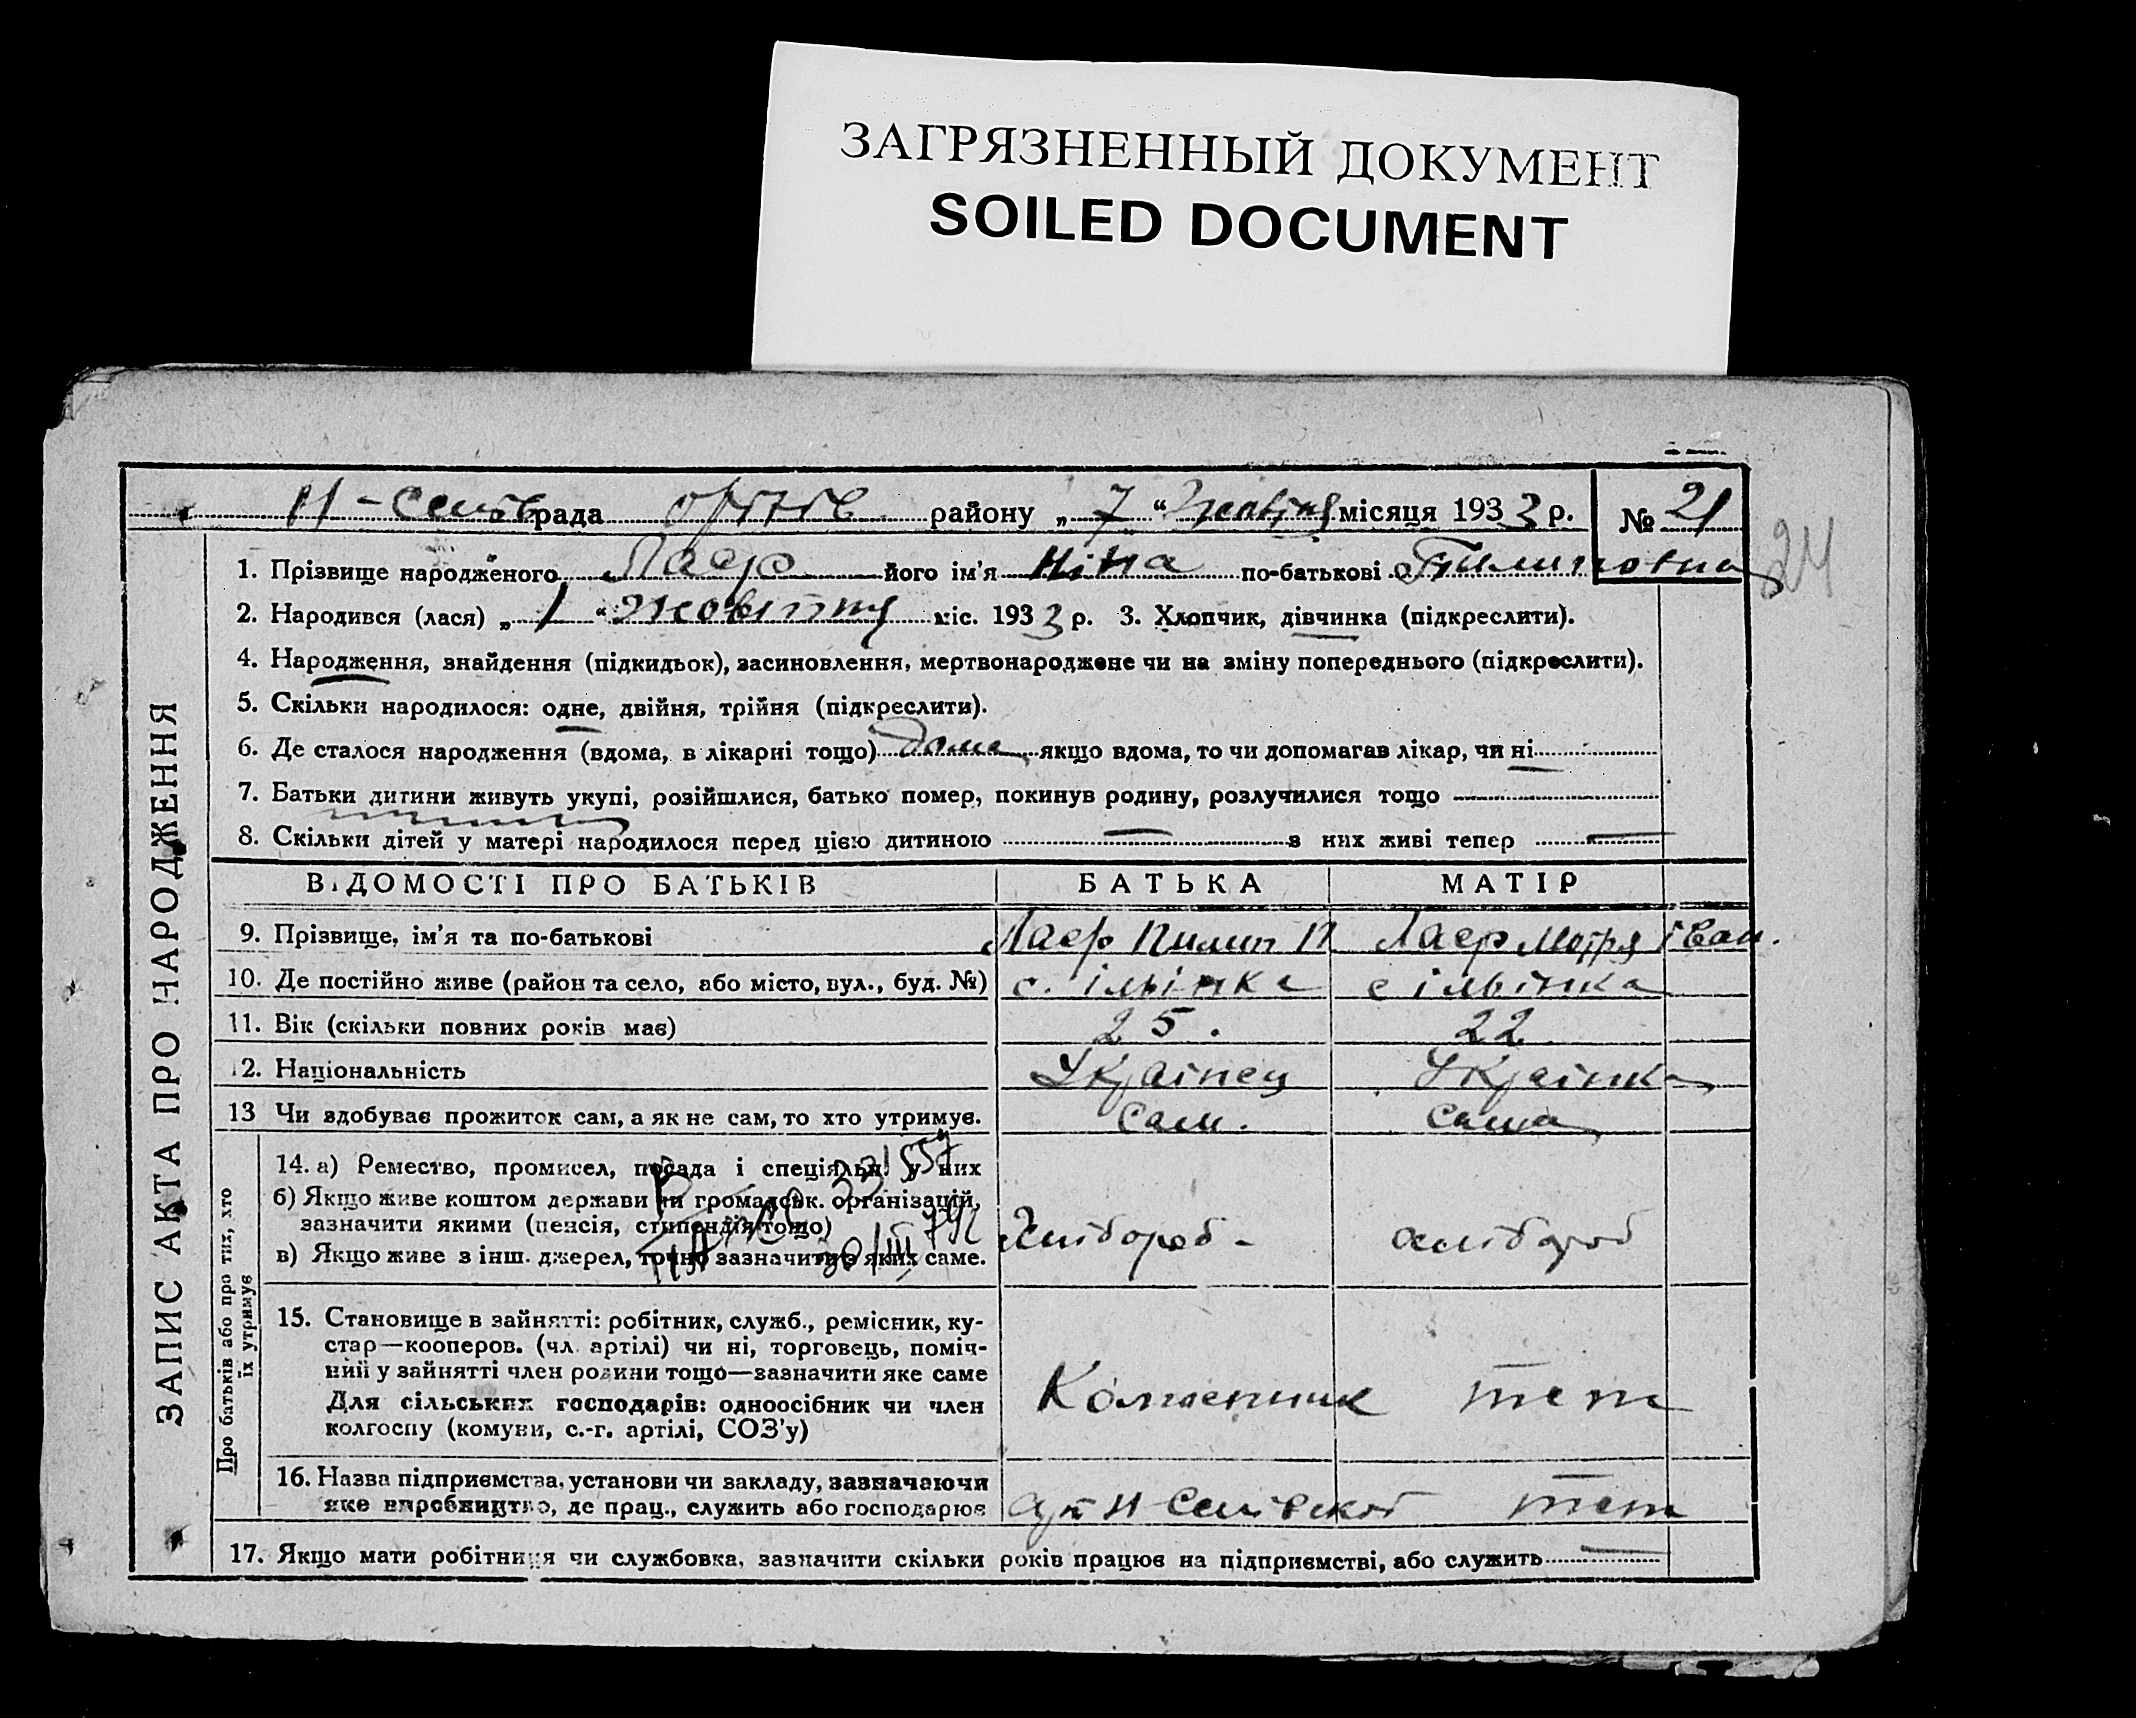 ЗАГРЯЗНЕННЫЙ ДОКУМЕНТ
SOILED DOCUMENT
Н-Селів рада району „ 7 “ Жовтня місяця 1933 р. № 21
24
1. Прізвище народженого Лаер його ім'я Ніна по-батькові Пилиповна
2. Народився (лася) „ 1 “ Жовтня міс. 1933 р. 3. Хлопчик, дівчинка (підкреслити).
4. Народження, знайдення (підкидьок), засиновлення, мертвонароджене чи на зміну попереднього (підкреслити).
5. Скільки народилося: одне, двійня, трійня (підкреслити).
6. Де сталося народження (вдома, в лікарні тощо) дома якщо вдома, то чи допомагав лікар, чи ні
7. Батьки дитини живуть укупі, розійшлися, батько помер, покинув родину, розлучилися тощо
8. Скільки дітей у матері народилося перед цією дитиною — з них живі тепер —
ЗАПИС АКТА ПРО НАРОДЖЕННЯ
ВІДОМОСТІ ПРО БАТЬКІВ БАТЬКА МАТІР
9. Прізвище, ім'я та по-батькові Лаер Пилип П Лаер Мотря Іван.
10. Де постійно живе (район та село, або місто, вул., буд. №) с. ільінка с ільінка
11. Вік (скільки повних років має) 25. 22
12. Національність Українец Українка
13 Чи здобуває прожиток сам, а як не сам, то хто утримує. Сам. Сама
Про батьків або про тих, хто
їх утримує
14. а) Ремество, промисел, посада і спеціяльн. у них
б) Якщо живе коштом держави чи громадськ. організацій,
зазначити якими (пенсія, стипендія тощо)
в) Якщо живе з інш. джерел, точно зазначити з яких саме.
Хлібороб - хлібороб
15. Становище в зайнятті: робітник, служб., ремісник, ку-
стар—кооперов. (чл. артілі) чи ні, торговець, поміч-
ний у зайнятті член родини тощо—зазначити яке саме
Для сільських господарів: одноосібник чи член
колгоспу (комуни, с.-г. артілі, СОЗ'у)
Колгоспник теж
16. Назва підприємства, установи чи закладу, зазначаючи
яке виробництво, де прац., служить або господарює
Н Селівской теж
17. Якщо мати робітниця чи службовка, зазначити скільки років працює на підприємстві, або служить —